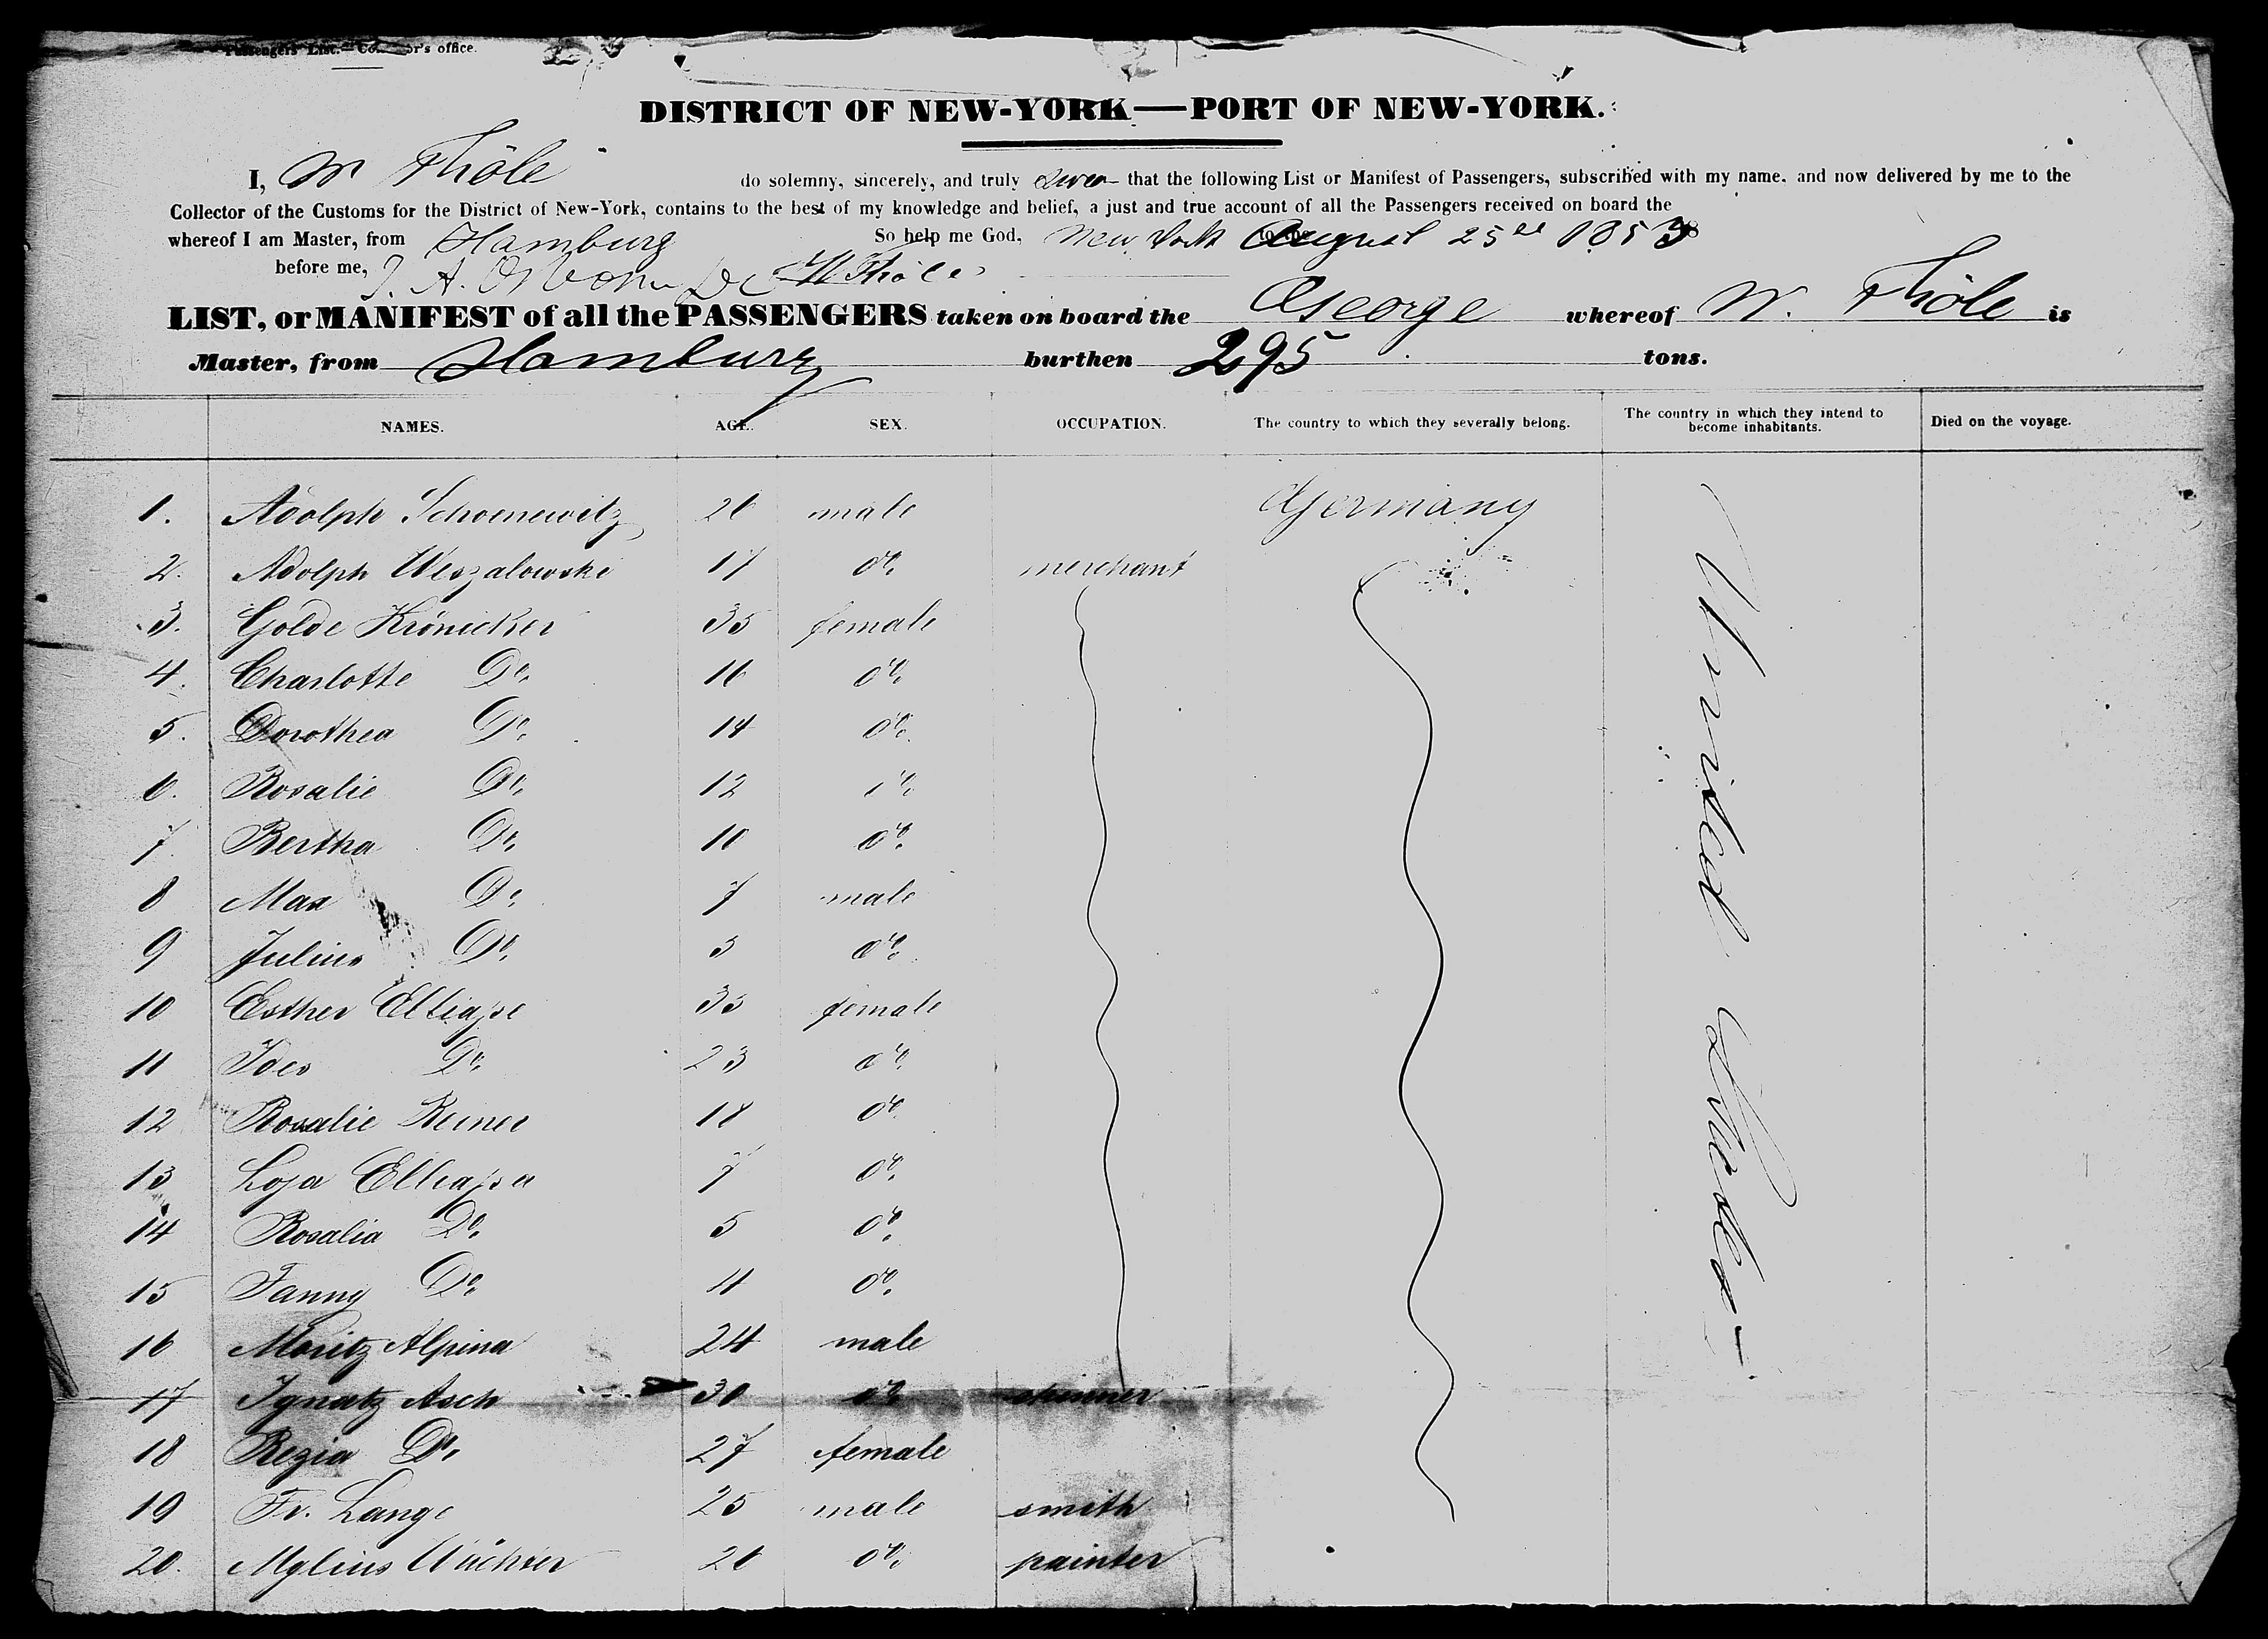 Passengers' List.— or's office.
DISTRICT OF NEW-YORK—PORT OF NEW-YORK.
I, W Thöle do solemny, sincerely, and truly swear that the following List or Manifest of Passengers, subscribed with my name, and now delivered by me to the
Collector of the Customs for the District of New-York, contains to the best of my knowledge and belief, a just and true account of all the Passengers received on board the
whereof I am Master, from Hamburg So help me God, New York August 25 1853
before me, W Thöle
LIST, or MANIFEST of all the PASSENGERS taken on board the George whereof W. Thöle is
Master, from Hamburg burthen 295 tons.
NAMES. AGE. SEX. OCCUPATION. The country to which they severally belong. The country in which they intend to become inhabitants. Died on the voyage.
1. Adolph Schoenewitz 26 male Germany
2. Adolph Weszalowski 17 do. merchant
3. Golde Krönicker 35 female
4. Charlotte Do. 16 do.
5. Dorothea Do. 14 do.
6. Rosalie Do. 12 do.
7. Bertha Do. 10 do.
8 Max Do. 7 male
9 Julius Do. 5 do.
10 Esther 35 female
11 Do. 23 do.
12 Rosalie 18 do.
13 7 do.
14 Rosalia Do. 5 do.
15 Fanny Do. 4 do.
16 Moritz Alpina 24 male
17 Ignatz Asch 30 do.
18 Regia Do. 27 female
19 Fr. Lange 25 male smith
20. Mylius Wächter 26 do. painter
United States